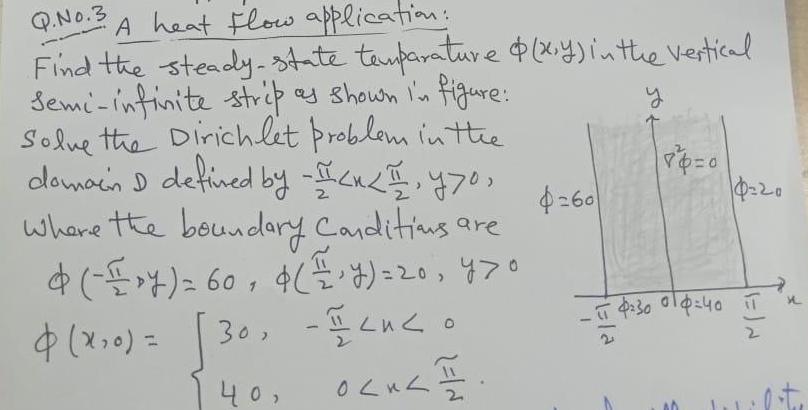 Q.No.3 A heat flow application:
Find the steady-state temparature ϕ(x,y) in the vertical
semi-infinite strip as shown in figure:
Solve the Dirichlet problem in the
domain D defined by -π/2<x<π/2, y>0,
where the boundary conditions are
ϕ(-π/2,y)=60, ϕ(π/2,y)=20, y>0
ϕ(x,0) = { 30, -π/2<x<0
40, 0<x<π/2.
y
∇²ϕ=0
ϕ=60
ϕ=20
-π/2 ϕ=30 0 ϕ=40 π/2 x